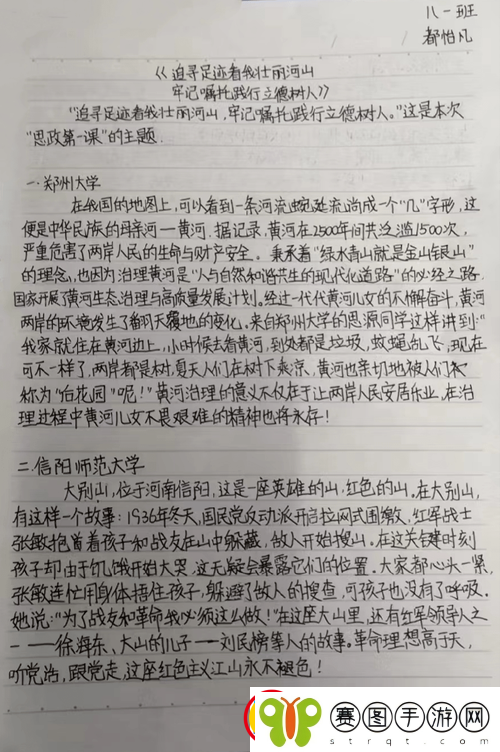 八一班
都怡凡
《追寻足迹看我壮丽河山
牢记嘱托践行立德树人》
"追寻足迹看我壮丽河山,牢记嘱托践行立德树人。"这是本次
"思政第一课"的主题.
一.郑州大学
在我国的地图上,可以看到一条河流蜿蜒流淌成一个"几"字形,这
便是中华民族的母亲河—黄河.据记录,黄河在2500年间共泛滥1500次,
严重危害了两岸人民的生命与财产安全。秉承着"绿水青山就是金山银山"
的理念,也因为治理黄河是"人与自然和谐共生的现代化道路"的必经之路.
国家开展了黄河生态治理与高质量发展计划。经过一代代黄河儿女的不懈奋斗,黄河
两岸的环境发生了翻天覆地的变化。来自郑州大学的思源同学这样讲到:"
我家就住在黄河边上,小时候去看黄河,到处都是垃圾,蚊蝇乱飞,现在
可不一样了,两岸都是树,夏天人们在树下乘凉,黄河也亲切地被人们
称为"后花园"呢!"黄河治理的意义不仅在于让两岸人民安居乐业,在治
理过程中黄河儿女不畏艰难的精神也将永存!
二.信阳师范大学
大别山,位于河南信阳,这是一座英雄的山.红色的山.在大别山,
有这样一个故事:1936年冬天,国民党反动派开启拉网式围缴,红军战士
张敏抱着孩子和战友在山中躲藏,敌人开始搜山。在这关键时刻
孩子却由于饥饿开始大哭,这无疑会暴露它们的位置.大家都心头一紧,
张敏连忙用身体捂住孩子,躲避了敌人的搜查,可孩子也没有了呼吸.
她说:"为了战友和革命我必须这么做!"在这座大山里,还有红军领导人之
一——徐海东、大山的儿子——刘民榜等人的故事。革命理想高于天,
听党治,跟党走,这座红色主义江山永不褪色!
赛图手游网
strqt.com